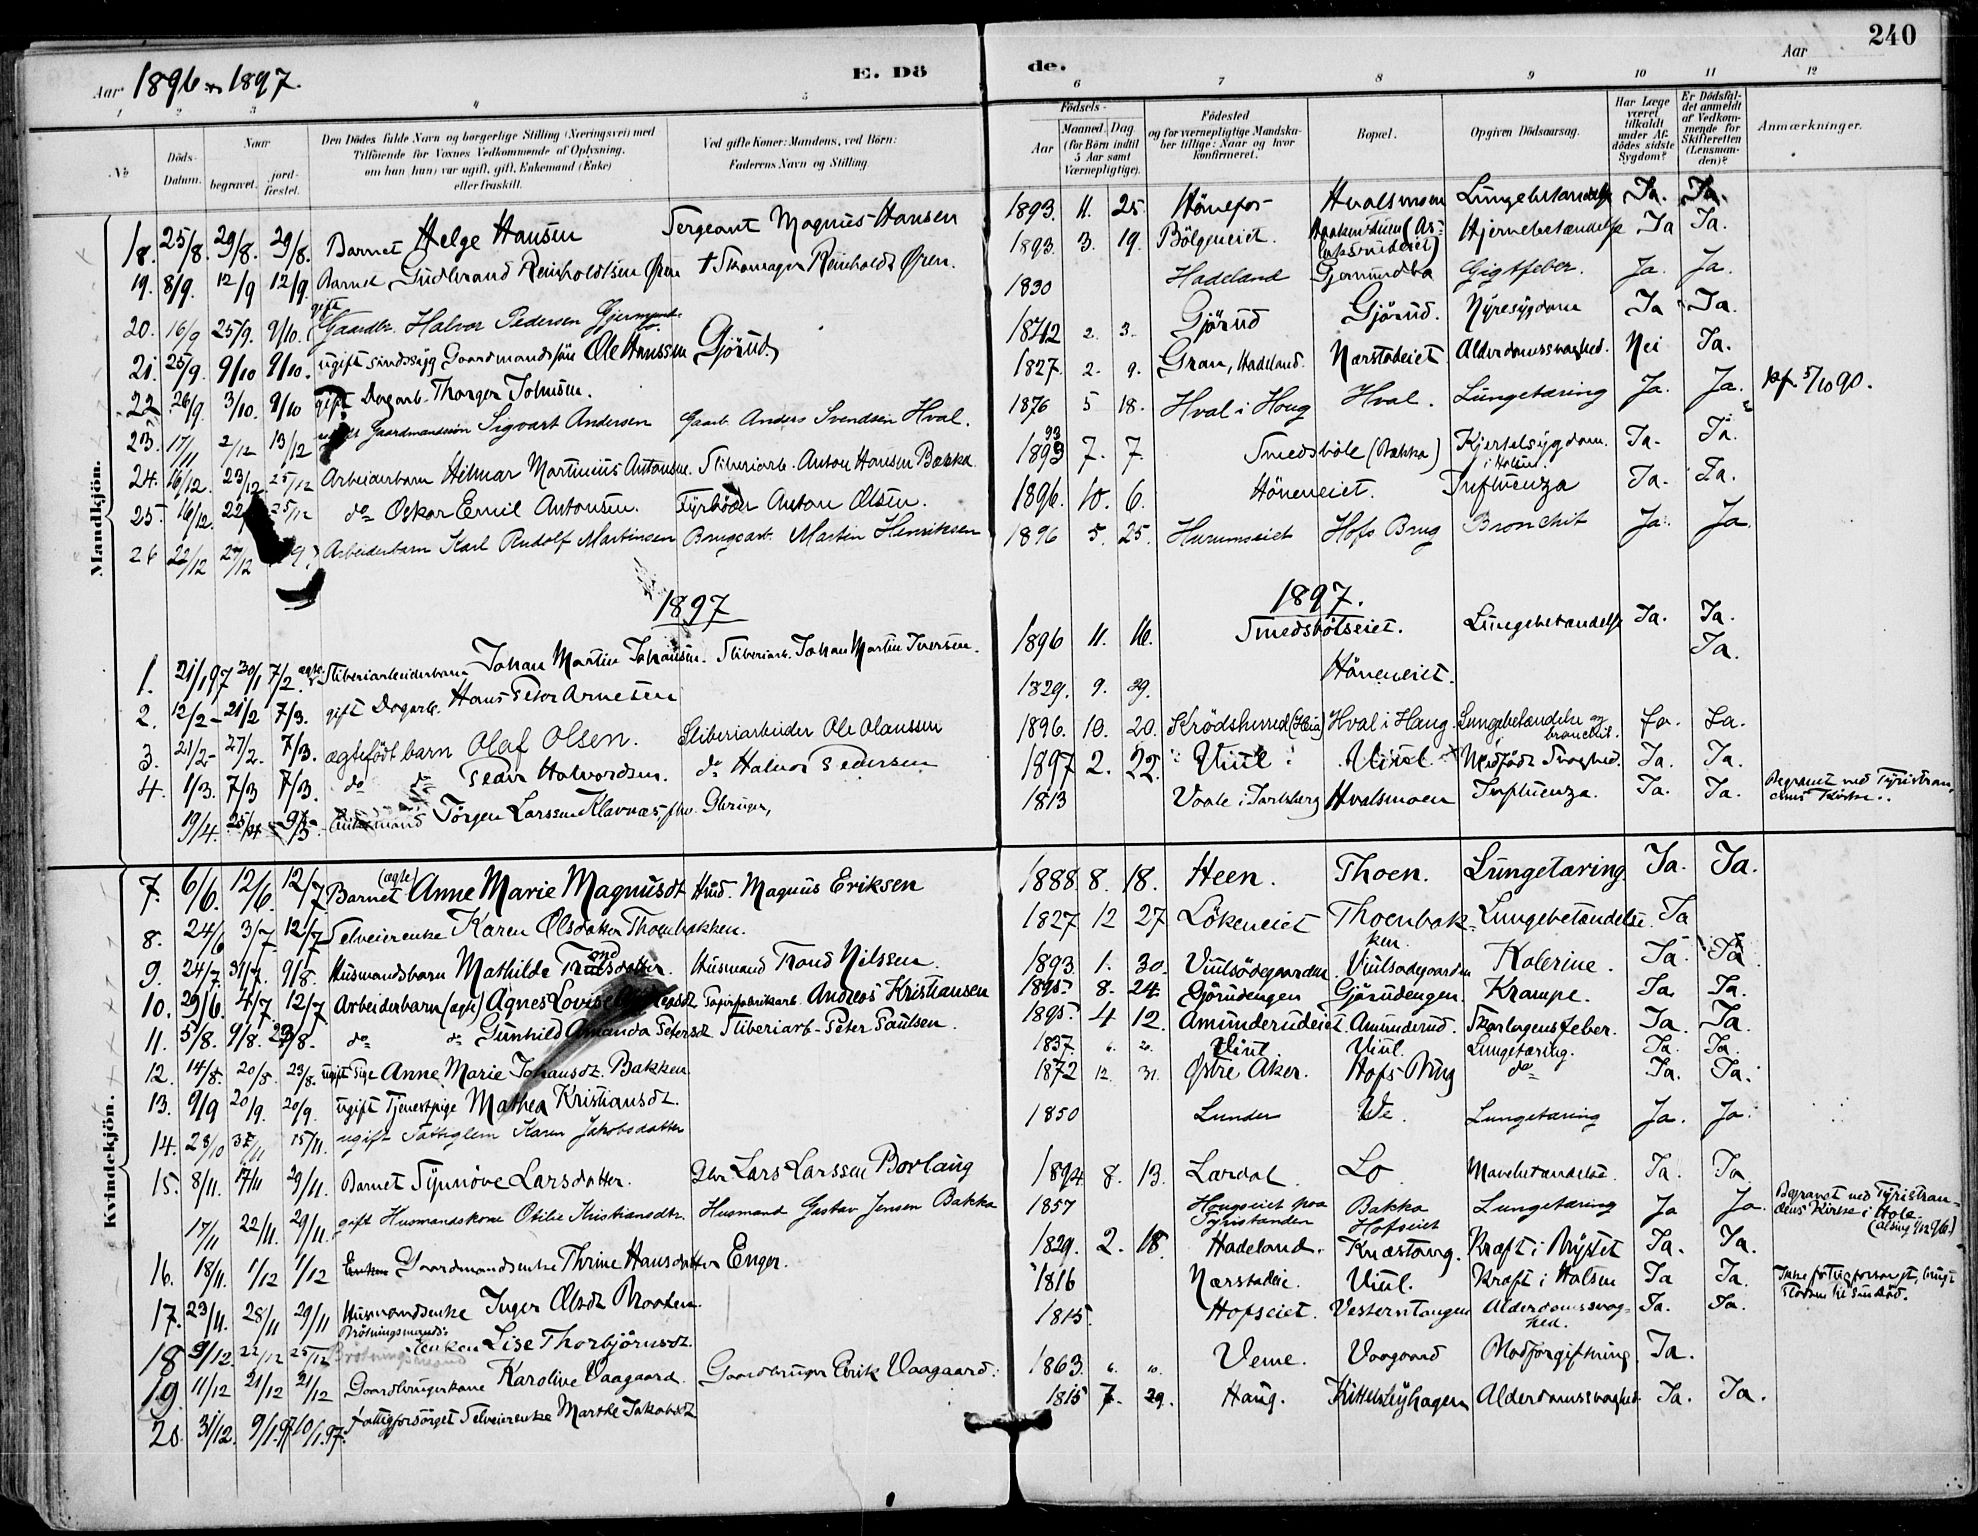 240
Aar 1896 & 1897.
E. Dö
de.
Aar
1 2 3 4 5 6 7 8 9 10 11 12
No
Döds-Datum.
Naar
begravet.
jord-fæstet.
Den Dödes fulde Navn og borgerlige Stilling (Næringsvei) med
Tilføiende for Voxnes Vedkommende af Oplysning,
om han (hun) var ugift, gift, Enkemand (Enke)
eller fraskilt.
Ved gifte Koner: Mandens, ved Börn:
Faderens Navn og Stilling.
Födsels-
Aar
Maaned. Dag
(for Börn indtil
5 Aar samt
Værnepligtige).
Födested
og for værnepligtige Mandska-
ber tillige: Naar og hvor
konfirmeret.
Bopæl.
Opgiven Dödsaarsag.
Har Læge
været
tilkaldt
under Af-
dödes sidste
Sygdom?
Er Dödsfal-
det anmeldt
af Vedkom-
mende for
Skifteretten
(Lensman-
den)?
Anmærkninger.
Mandkjön.
18. 25/8. 29/8. 29/8. Barnet Helge Hansen Sergeant Magnus Hansen 1893. 11. 25 Hönefos Hvalsmoen Lungebetændelse Ja. Ja.
19. 8/9. 12/9 12/9. Barnet Gudbrand Reinholdtsen Øren † Skomager Reinholdt Øren. 1893. 3. 19. Bölgeneiet. Hjernebetændelse Ja Ja.
20. 16/9 25/9. 9/10. gift Gaardbr. Halvor Pedersen Gjermundbo. 1830 Hadeland Gjermundbo Gigtfeber. Ja. Ja.
21. 25/9. 9/10 9/10. ugift sindssyg Gaardmandssön Ole Hanssen Gjörud. 1842 2. 3. Gjörud Gjörud. Nyresygdom Ja Ja.
22 26/9. 3/10. 9/10 gift Dagarb. Thorger Johnsen. 1827. 2. 9. Gran, Hadeland. Nærstadeiet Alderdomssvaghed. Nei Ja.
23. 17/11 2/12 13/12 Gaardmandssön Sigvart Andersen Gaarb. Anders Svendsen Hval. 1876 5 18. Hval i Houg Hval. Lungetæring Ja. Ja. kf. 5/10 90.
24. 16/12. 23/12 25/12 Arbeiderbarn Hilmar Martinius Antonsen. Sliberiarb. Anton Hansen Bakka 1893 7. 7. Smedsböle (Bakka) Kjertelsygdom i Halsen. Ja. Ja.
25. 16/12. 22 25/12 do Oskar Emil Antonsen. Fyrböder Anton Olsen. 1896. 10. 6. Höneneiet. Influenza Ja. Ja.
26 22/12 27/12 Arbeiderbarn Karl Rudolf Martinsen Brugsarb. Martin Henriksen 1896 5. 25. Harumseiet Hofs Brug Bronchit Ja. Ja
1897 1897.
1. 21/1 97 30/1 7/2. Sliberiarbeiderbarn Johan Martin Johansen. Sliberiarb. Johan Martin Iversen. 1896 11. 16. Smedsbölseiet. Lungebetændelse Ja. Ja.
2. 12/2 21/2 7/3. gift Dagarb. Hans Peter Arnesen 1829. 9. 29. Höneneiet. Ja.
3. 21/2 27/2. 7/3. ægtefödt barn Olaf Olsen. Sliberiarbeider Ole Olaussen 1896. 10. 20. Krödsherred Hval i Haug Lungebetændelse og bronchit. Ja. Ja.
4. 1/3. 7/3 7/3. do do Peder Halvordsen. do Halvor Pedersen 1897 2. 22. Viul Viul Medfödt Svaghed. Ja. Ja.
19/4. 25/4 9/5 Enkemand Jörgen Larssen Klævnæs, fhv. Gbruger, 1813 Vaale i Jarlsberg Hvalsmoen Influenza. Ja. Ja. Begravet ved Tyristran-
dens Kirke.
Kvindekjön.
7. 6/6. 12/6. 12/7 Barnet (ægte) Anne Marie Magnusdt Husd. Magnus Eriksen 1888 8. 18. Heen. Thoen. Lungetæring Ja. Ja.
8. 24/6 3/7. 12/7 Selveierenke Karen Olsdatter Thoenbakken. 1827 12 27 Lökeneiet Thoenbakken Lungebetændelse. Ja
9. 24/7. 31/7. 9/8. Husmandsbarn Mathilde Trondsdatter. Husmand Trond Nilssen 1893. 1. 30. Viulsödegaarden Viulsödegaarden Kolerine. Ja. Ja
10. 29/6. 4/7. 12/7 Arbeiderbarn (ægte) Agnes Lovise Papirfabrikarb. Andreas Kristiansen 1895. 8. 24. Gjörudengen Gjörudengen. Krampe. Ja. Ja.
11. 5/8. 9/8. 23/8. do do Gunhild Amanda Petersdt Sliberiarb. Peter Paulsen. 1895. 4 12. Amunderudeiet. Amunderud. Skarlagensfeber. Ja. Ja.
12. 14/8. 20/8. 23/8. ugift Pige Anne Marie Johansdt. Bakken 1837. 6. 20. Viul Viul. Lungetæring. Ja. Ja.
13. 9/9 20/9. 20/9. ugift Tjenestpige Mathea Kristiansdt. 1872 12. 31. Østre Aker. Hofs-Brug do Ja. Ja.
14. 28/10 3/11 15/11. ugift Fattiglem Karen Jakobsdatter 1850 Lunder We Lungetæring Ja. Ja.
15. 8/11. 17/11 29/11. Barnet Synnöve Larsdatter. Gbr. Lars Larssen Borlaug 1894 8. 13. Lærdal. Lo Mavebetændelse. Ja. Ja
17/11 22/11. 29/11. gift Husmandskone Otilie Kristiansdtr. Husmand Gustav Jensen Bakka 1857 Hougseiet paa Tyristranden Bakka Hofseiet Lungetæring Ja Ja. Begravet ved Tyristran-
dens Kirke i Hole
16. 18/11. 1/12 1/12 Gaardmandsenke Thrine Hansdatter Enger. 1829. 2. 18. Hadeland. Knæstang. Kræft i Brystet Ja. Ja.
17. 23/11. 28/11 29/11 Husmandsenke Inger Olsdt Braaten. 1816 Nærstadeie. Viul. Kræft i Halsen Ja Ja.
18 9/12. 22/12 25/12 Brötningsmands-enken Lise Thorbjörnsdt. 1815. Hofseiet. Vesterntangen Alderdomssvaghed. Ja. Ja.
19. 11/12 21/12 21/12 Gaardbrugerkone Karoline Vaagaard. Gaardbruger Erik Vaagaard. 1863. 6. 10. Veme. Vaagaard Blodforgiftning. Ja.
20. 31/12. 9/1.97 10/1.97. Fattigforsörget Selveierenke Marthe Jakobsdt 1815 7. 29. Haug. Kittelslyhagen Alderdomssvaghed. Ja. Ja.